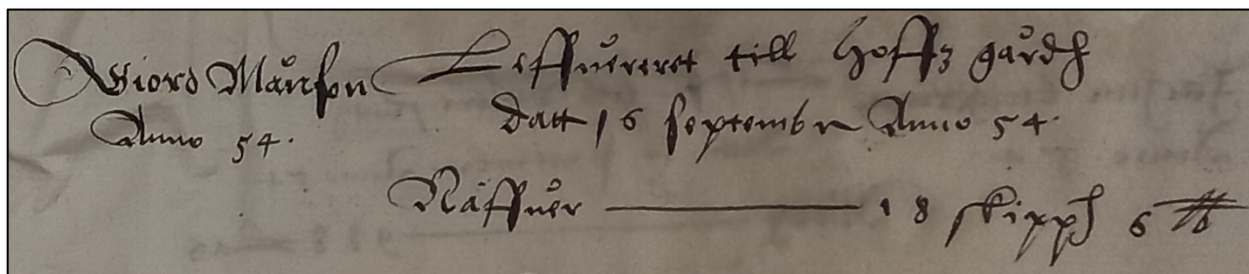 Biord Månson
Anno 54.
Leffuereret till Hoffz gårdh
Datt 16 septembr Anno 54.
Näffuer ——— 18 skippd 6 ℔